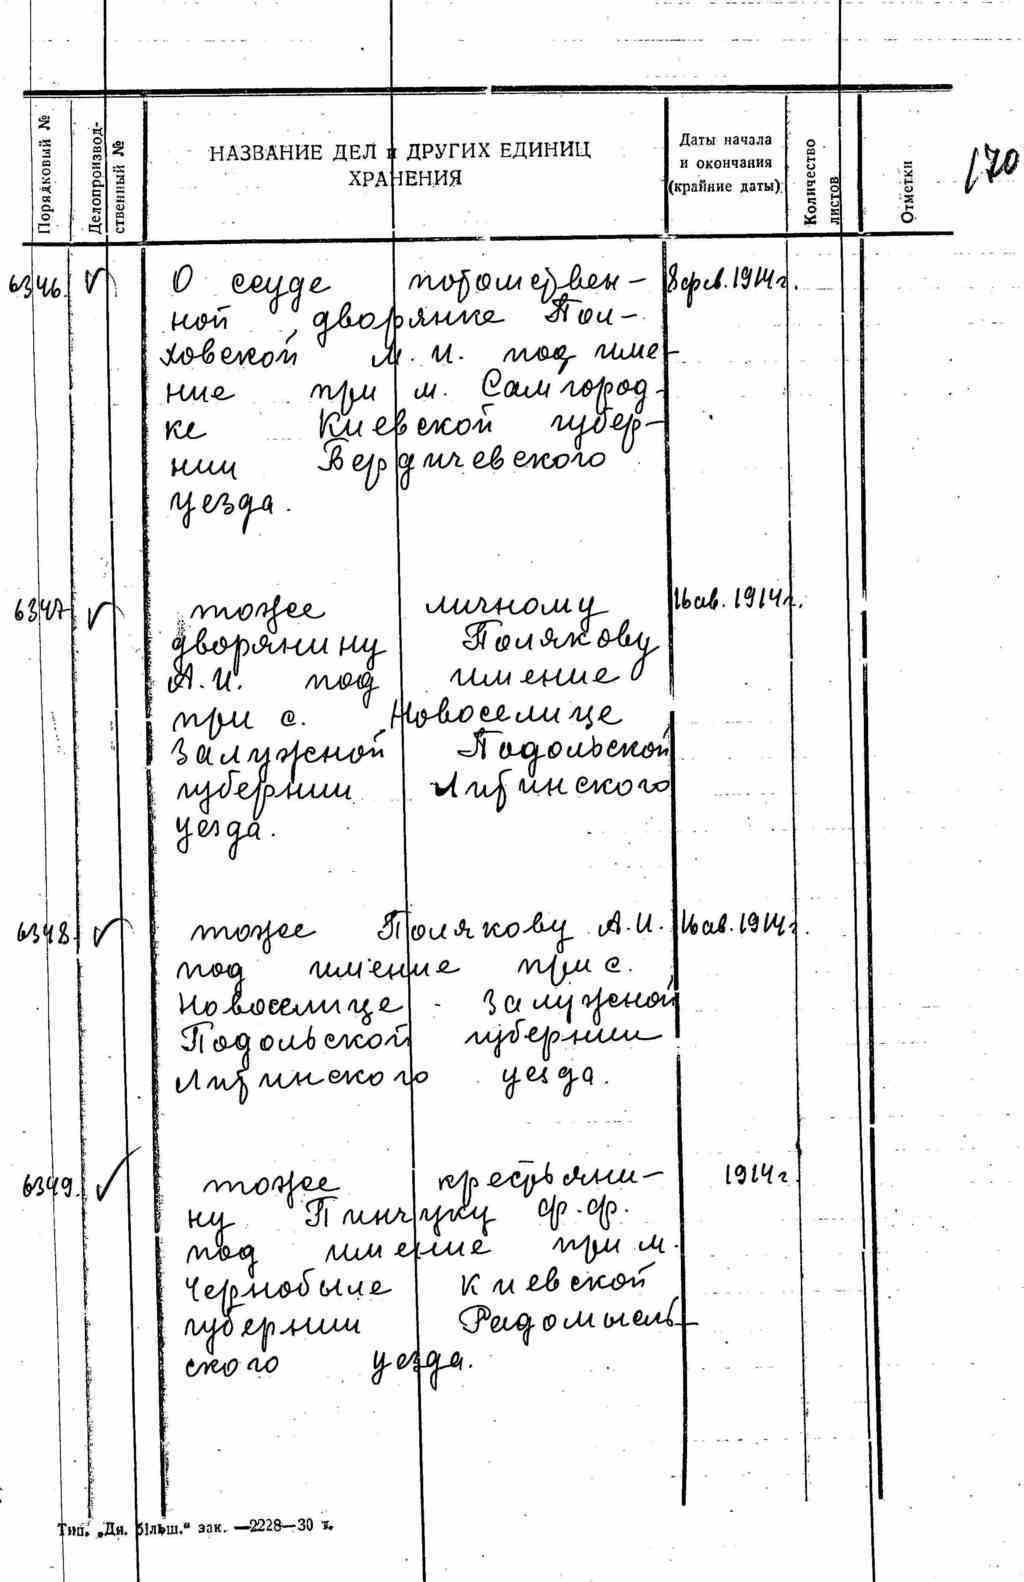 Порядковый №
Делопроизвод-
ственный №
НАЗВАНИЕ ДЕЛ и ДРУГИХ ЕДИНИЦ
ХРАНЕНИЯ
Даты начала
и окончания
(крайние даты)
Количество
листов
Отметки
170
6346. О ссуде потомствен- 8 фев. 1914 г.
ной дворянке Пол-
ховской М. И. под име-
ние при м. Самгород-
ке Киевской губер-
нии Бердичевского
уезда.
6347 тоже личному 16 ав. 1914 г.
дворянину Полякову
А. И. под имение
при с. Новоселице
Залужной Подольской
губернии Литинского
уезда.
6348. тоже Полякову А. И. 16 ав. 1914 г.
под имение при с.
Новоселице - Залужной
Подольской губернии
Литинского уезда.
6349. тоже крестьяни- 1914 г.
ну Пинчуку Ф. Ф.
под имение при м.
Чернобыле Киевской
губернии Радомысль-
ского уезда.
Тип. „Дн. більш.“ зак. —2228—30 т.